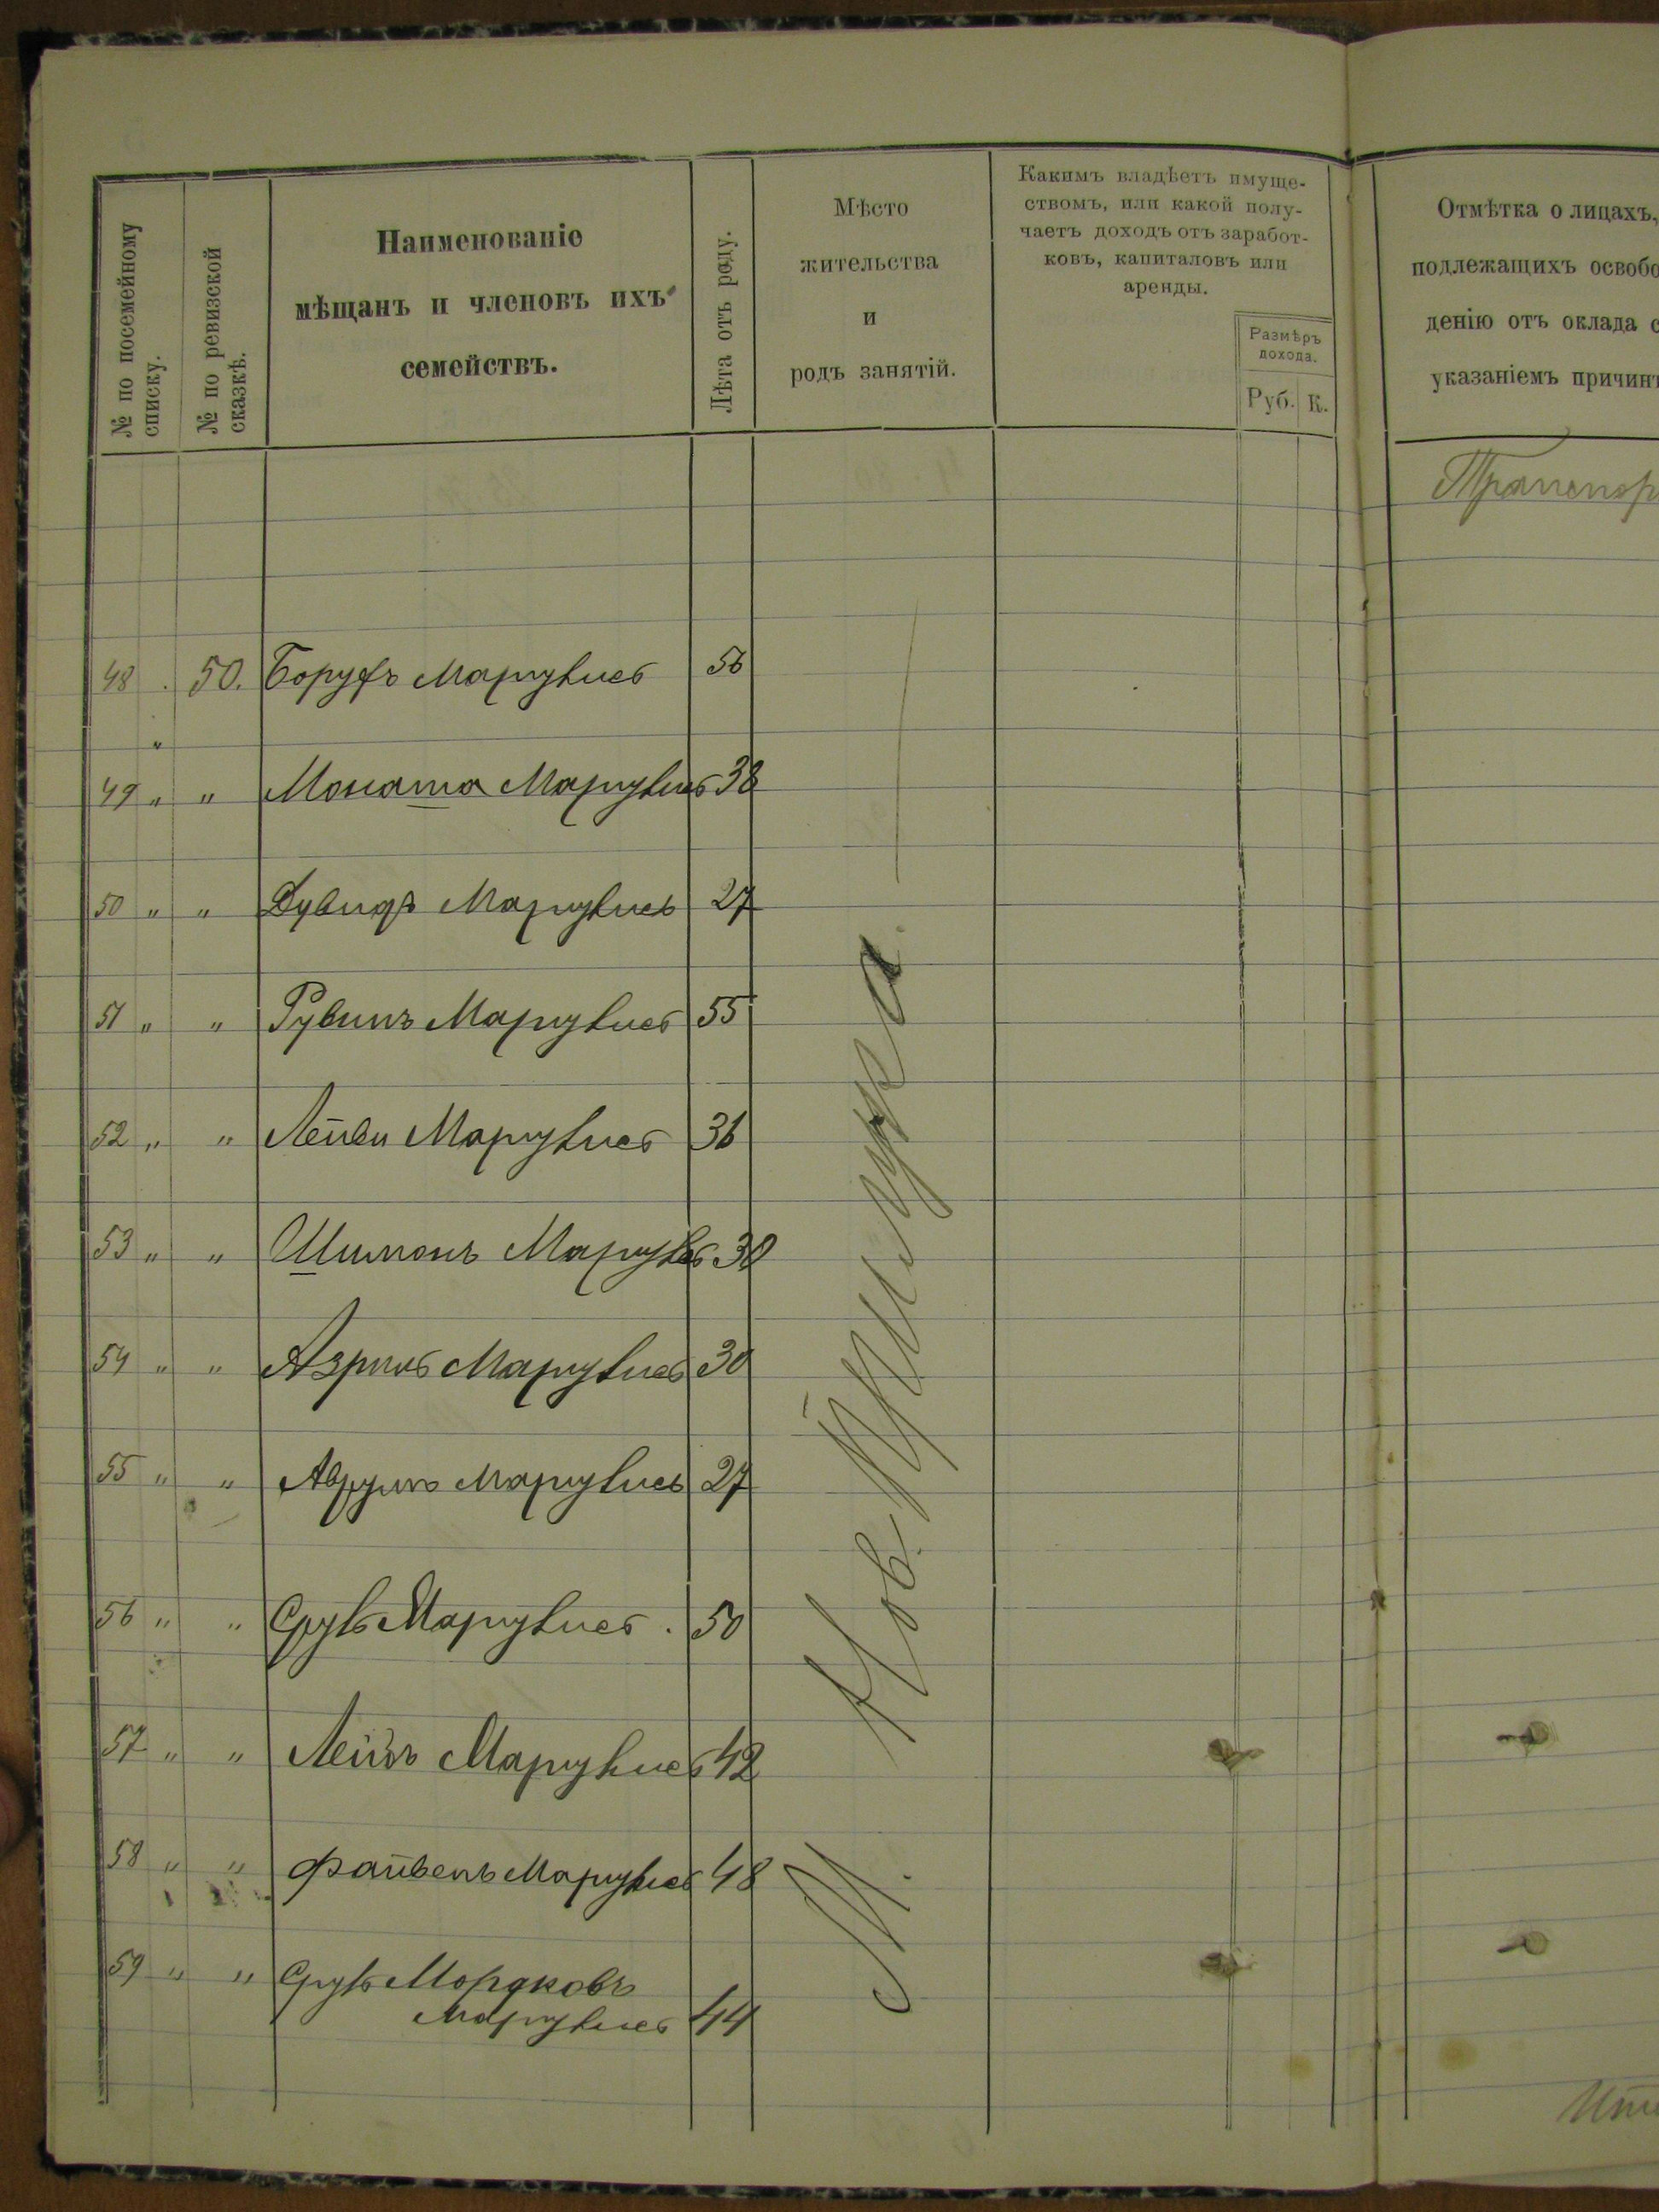 № по посемейному списку.
№ по ревизской сказкѣ.
Наименованіе
мѣщанъ и членовъ ихъ
семействъ.
Лѣта отъ роду.
Мѣсто
жительства
и
родъ занятій.
Какимъ владѣетъ имуще-
ствомъ, или какой полу-
чаетъ доходъ отъ заработ-
ковъ, капиталовъ или
аренды.
Размѣръ
дохода.
Руб. К.
Отмѣтка о лицахъ,
подлежащихъ освобо
денію отъ оклада с
указаніемъ причинъ
Транспор
48 . 50. Борухъ Маргулисъ 56
49 " " Монаша Маргулисъ 38
50 " " Дувидъ Маргулисъ 27
51 " " Рувинъ Маргулисъ 55
52 " " Лейви Маргулисъ 36
53 " " Шимонъ Маргулисъ 30
54 " " Азриль Маргулисъ 30
55 " " Аврумъ Маргулисъ 27
56 " " Сруль Маргулисъ . 50
57 " " Маргулисъ 42
58 " " Файвель Маргулисъ 48
59 " " Сруль Мордковъ
Маргулисъ 44
М. Нов. Прилука.
Ит